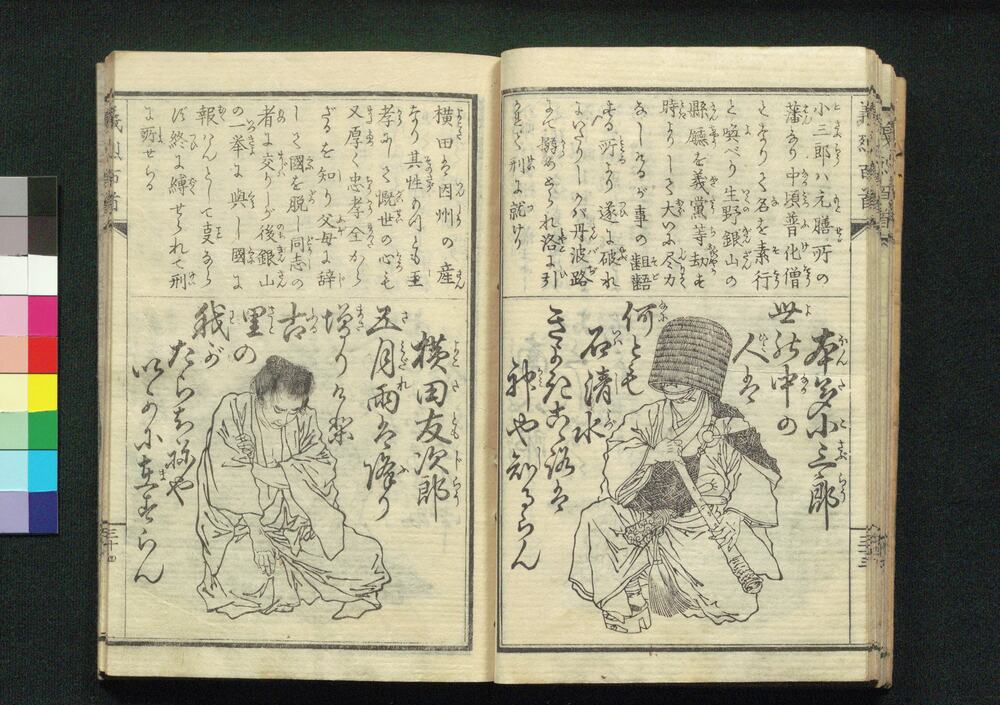 義烈百首
小三郎ハ元膳所の
藩なり中頃普化僧
となりて名を素行
と喚べり生野銀山の
縣廳を義黨等劫す
時かりしさ大いに尽力
なしけるが事の齟齬
する所ありて遂に破れ
にいたりしかバ丹波路
まで
れ洛に引
れて刑に就けり
本多小三郎
世の中の
人は
何とも
石清水
きよきこゝろは
神や知るらん
三十三
横田ハ因州の産
なり其性めつとも至
孝にして慨世の心も
又厚く忠孝全から
ざるを知り父母に辞
しさ國を脱し同志の
者に交りしが後銀山
の一挙に與し國に
報いんとして支なら
ず終に縛せられて刑
に所せらる
横田友次郎
五月雨は降り
増りけり
古
里の
我が
たらちねや
いかに在すらん
三十四
義烈百首